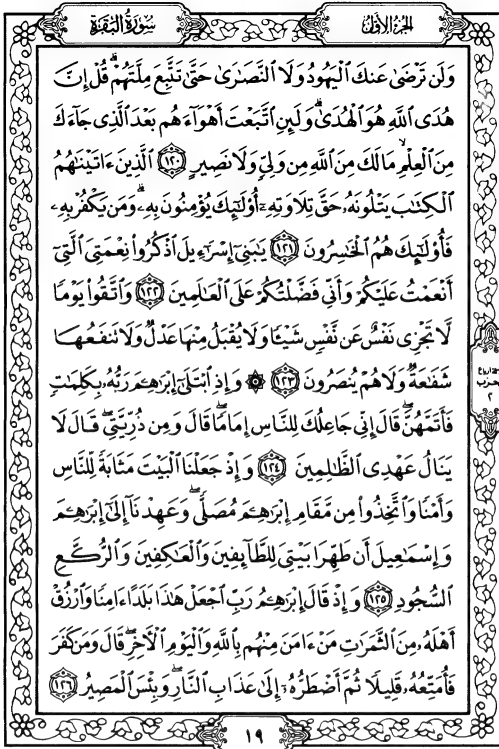 سُورَةُ البَقَرَةِ
الجُزْءُ الأَوَّلُ
وَلَن تَرْضَىٰ عَنكَ ٱلْيَهُودُ وَلَا ٱلنَّصَٰرَىٰ حَتَّىٰ تَتَّبِعَ مِلَّتَهُمْ ۗ قُلْ إِنَّ
هُدَى ٱللَّهِ هُوَ ٱلْهُدَىٰ ۗ وَلَئِنِ ٱتَّبَعْتَ أَهْوَآءَهُم بَعْدَ ٱلَّذِى جَآءَكَ
مِنَ ٱلْعِلْمِ ۙ مَالَكَ مِنَ ٱللَّهِ مِن وَلِىٍّ وَلَا نَصِيرٍ ﴿١٢٠﴾ ٱلَّذِينَ ءَاتَيْنَٰهُمُ
ٱلْكِتَٰبَ يَتْلُونَهُۥ حَقَّ تِلَاوَتِهِۦٓ أُو۟لَٰٓئِكَ يُؤْمِنُونَ بِهِۦ ۗ وَمَن يَكْفُرْ بِهِۦ
فَأُو۟لَٰٓئِكَ هُمُ ٱلْخَٰسِرُونَ ﴿١٢١﴾ يَٰبَنِىٓ إِسْرَٰٓءِيلَ ٱذْكُرُوا۟ نِعْمَتِىَ ٱلَّتِىٓ
أَنْعَمْتُ عَلَيْكُمْ وَأَنِّى فَضَّلْتُكُمْ عَلَى ٱلْعَٰلَمِينَ ﴿١٢٢﴾ وَٱتَّقُوا۟ يَوْمًا
لَّا تَجْزِى نَفْسٌ عَن نَّفْسٍ شَيْـًٔا وَلَا يُقْبَلُ مِنْهَا عَدْلٌ وَلَا تَنفَعُهَا
شَفَٰعَةٌ وَلَا هُمْ يُنصَرُونَ ﴿١٢٣﴾ ۞ وَإِذِ ٱبْتَلَىٰٓ إِبْرَٰهِۦمَ رَبُّهُۥ بِكَلِمَٰتٍ
فَأَتَمَّهُنَّ ۖ قَالَ إِنِّى جَاعِلُكَ لِلنَّاسِ إِمَامًا ۖ قَالَ وَمِن ذُرِّيَّتِى ۖ قَالَ لَا
يَنَالُ عَهْدِى ٱلظَّٰلِمِينَ ﴿١٢٤﴾ وَإِذْ جَعَلْنَا ٱلْبَيْتَ مَثَابَةً لِّلنَّاسِ
وَأَمْنًا وَٱتَّخِذُوا۟ مِن مَّقَامِ إِبْرَٰهِۦمَ مُصَلًّى ۖ وَعَهِدْنَآ إِلَىٰٓ إِبْرَٰهِۦمَ
وَإِسْمَٰعِيلَ أَن طَهِّرَا بَيْتِىَ لِلطَّآئِفِينَ وَٱلْعَٰكِفِينَ وَٱلرُّكَّعِ
ٱلسُّجُودِ ﴿١٢٥﴾ وَإِذْ قَالَ إِبْرَٰهِۦمُ رَبِّ ٱجْعَلْ هَٰذَا بَلَدًا ءَامِنًا وَٱرْزُقْ
أَهْلَهُۥ مِنَ ٱلثَّمَرَٰتِ مَنْ ءَامَنَ مِنْهُم بِٱللَّهِ وَٱلْيَوْمِ ٱلْءَاخِرِ ۖ قَالَ وَمَن كَفَرَ
فَأُمَتِّعُهُۥ قَلِيلًا ثُمَّ أَضْطَرُّهُۥٓ إِلَىٰ عَذَابِ ٱلنَّارِ ۖ وَبِئْسَ ٱلْمَصِيرُ ﴿١٢٦﴾
حزب
٢
١٩